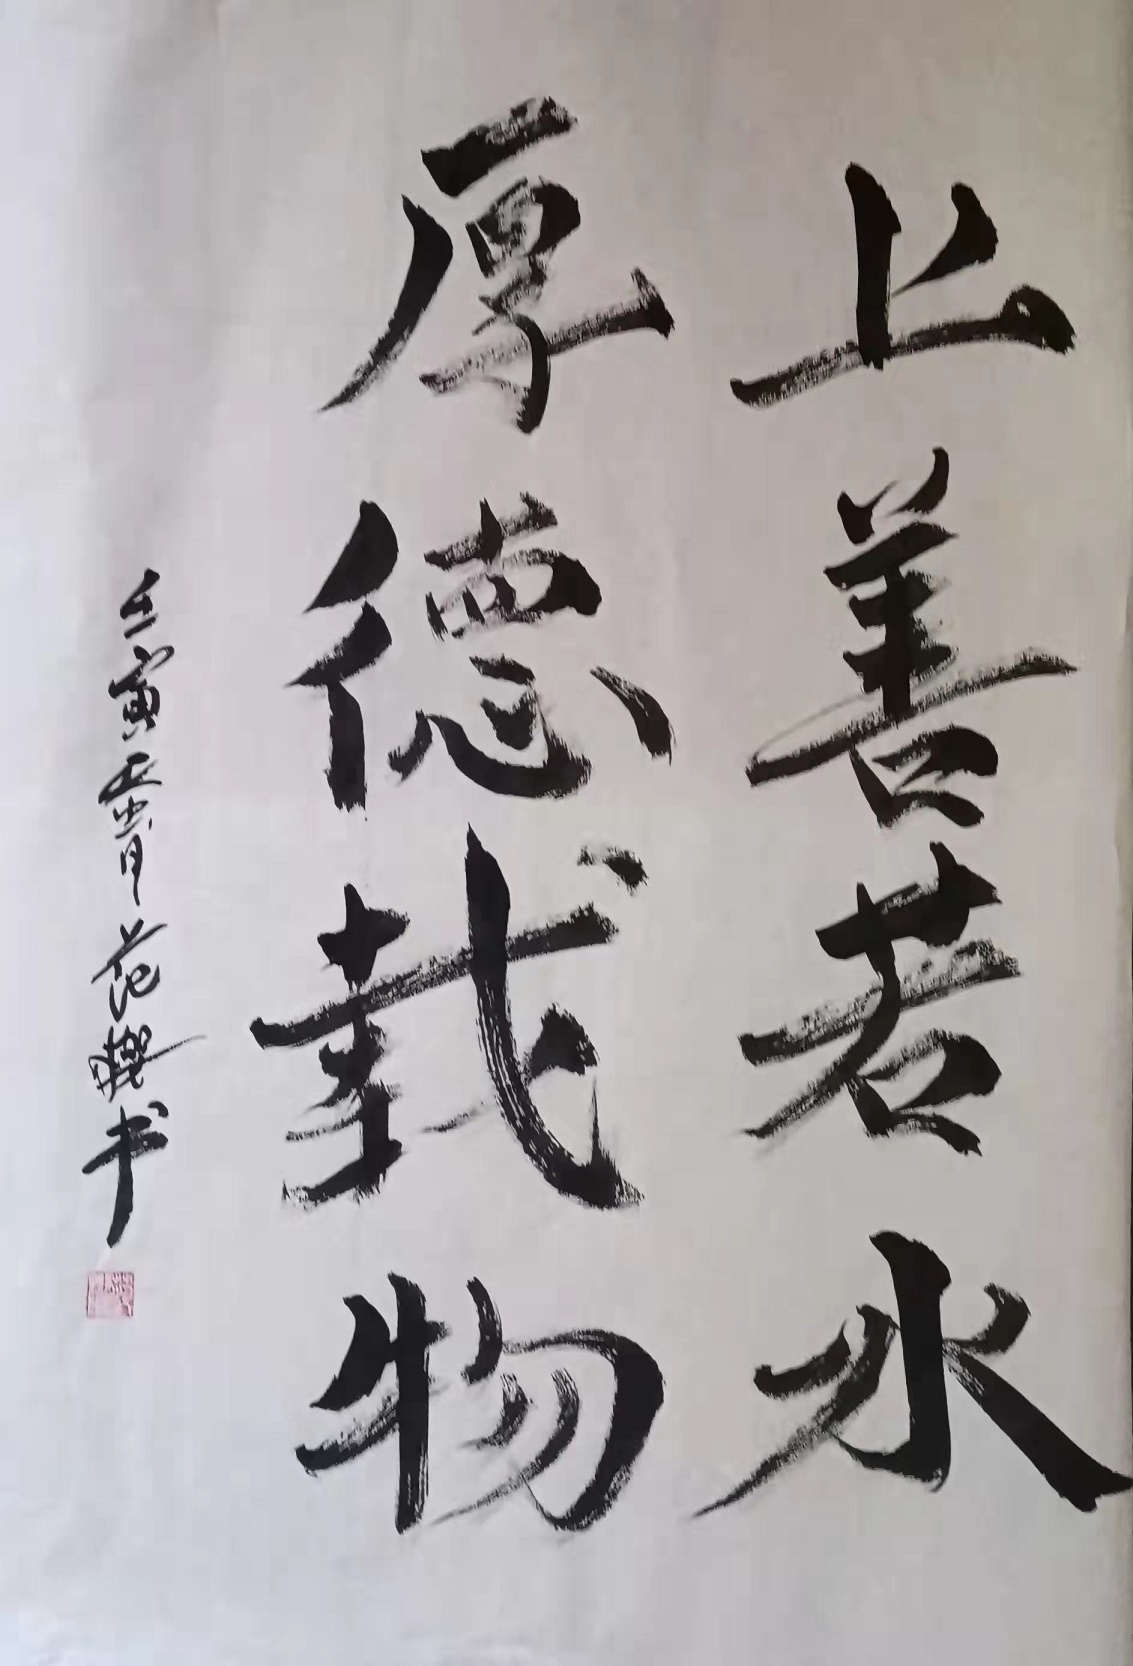 上善若水
厚德载物
壬寅年春月 范曦书